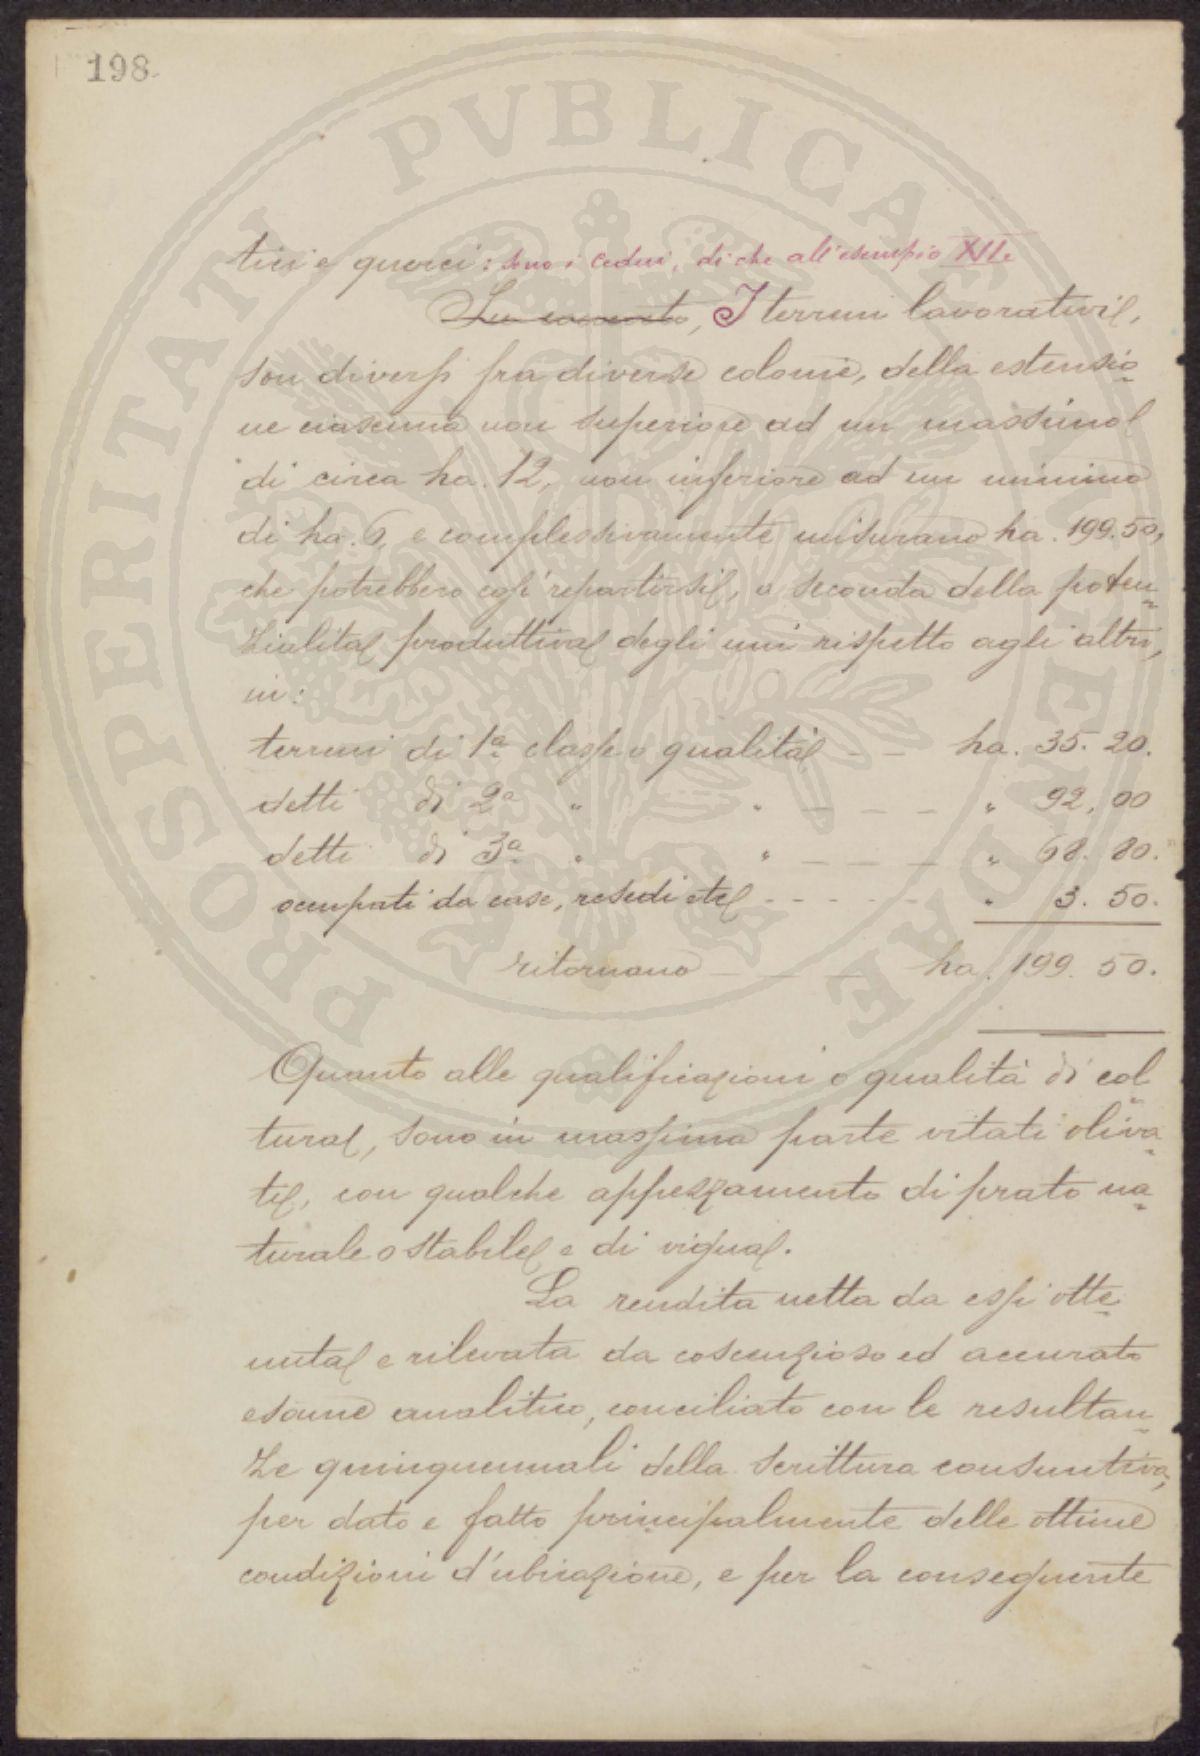 198
PROSPERITATI PVBLICAE AVGENDAE
tici e querci: sono i cedui, di che all'esempio XII.
I terreni lavorativi,
son divisi fra diverse colonie, della estensio-
ne ciascuna non superiore ad un massimo
di circa ha. 12, non inferiore ad un minimo
di ha. 6, e complessivamente misurano ha. 199.50,
che potrebbero così repartirsi, a seconda della poten-
zialità produttiva degli uni rispetto agli altri,
in:
terreni di 1ª classe o qualità - - ha. 35. 20.
detti di 2ª " " - - - - " 92, 00
detti di 3ª " " - - - - " 68. 80.
occupati da case, resedi etc - - - - - " 3. 50.
ritornano - - - ha. 199. 50.
Quanto alle qualificazioni o qualità di col-
tura, sono in massima parte vitati oliva-
ti, con qualche appezzamento di prato na-
turale o stabile e di vigna.
La rendita netta da essi otte-
nuta e rilevata da coscenzioso ed accurato
esame analitico, conciliato con le resultan-
ze quinquennali della scrittura consuntiva,
per dato e fatto principalmente delle ottime
condizioni d'ubicazione, e per la conseguente